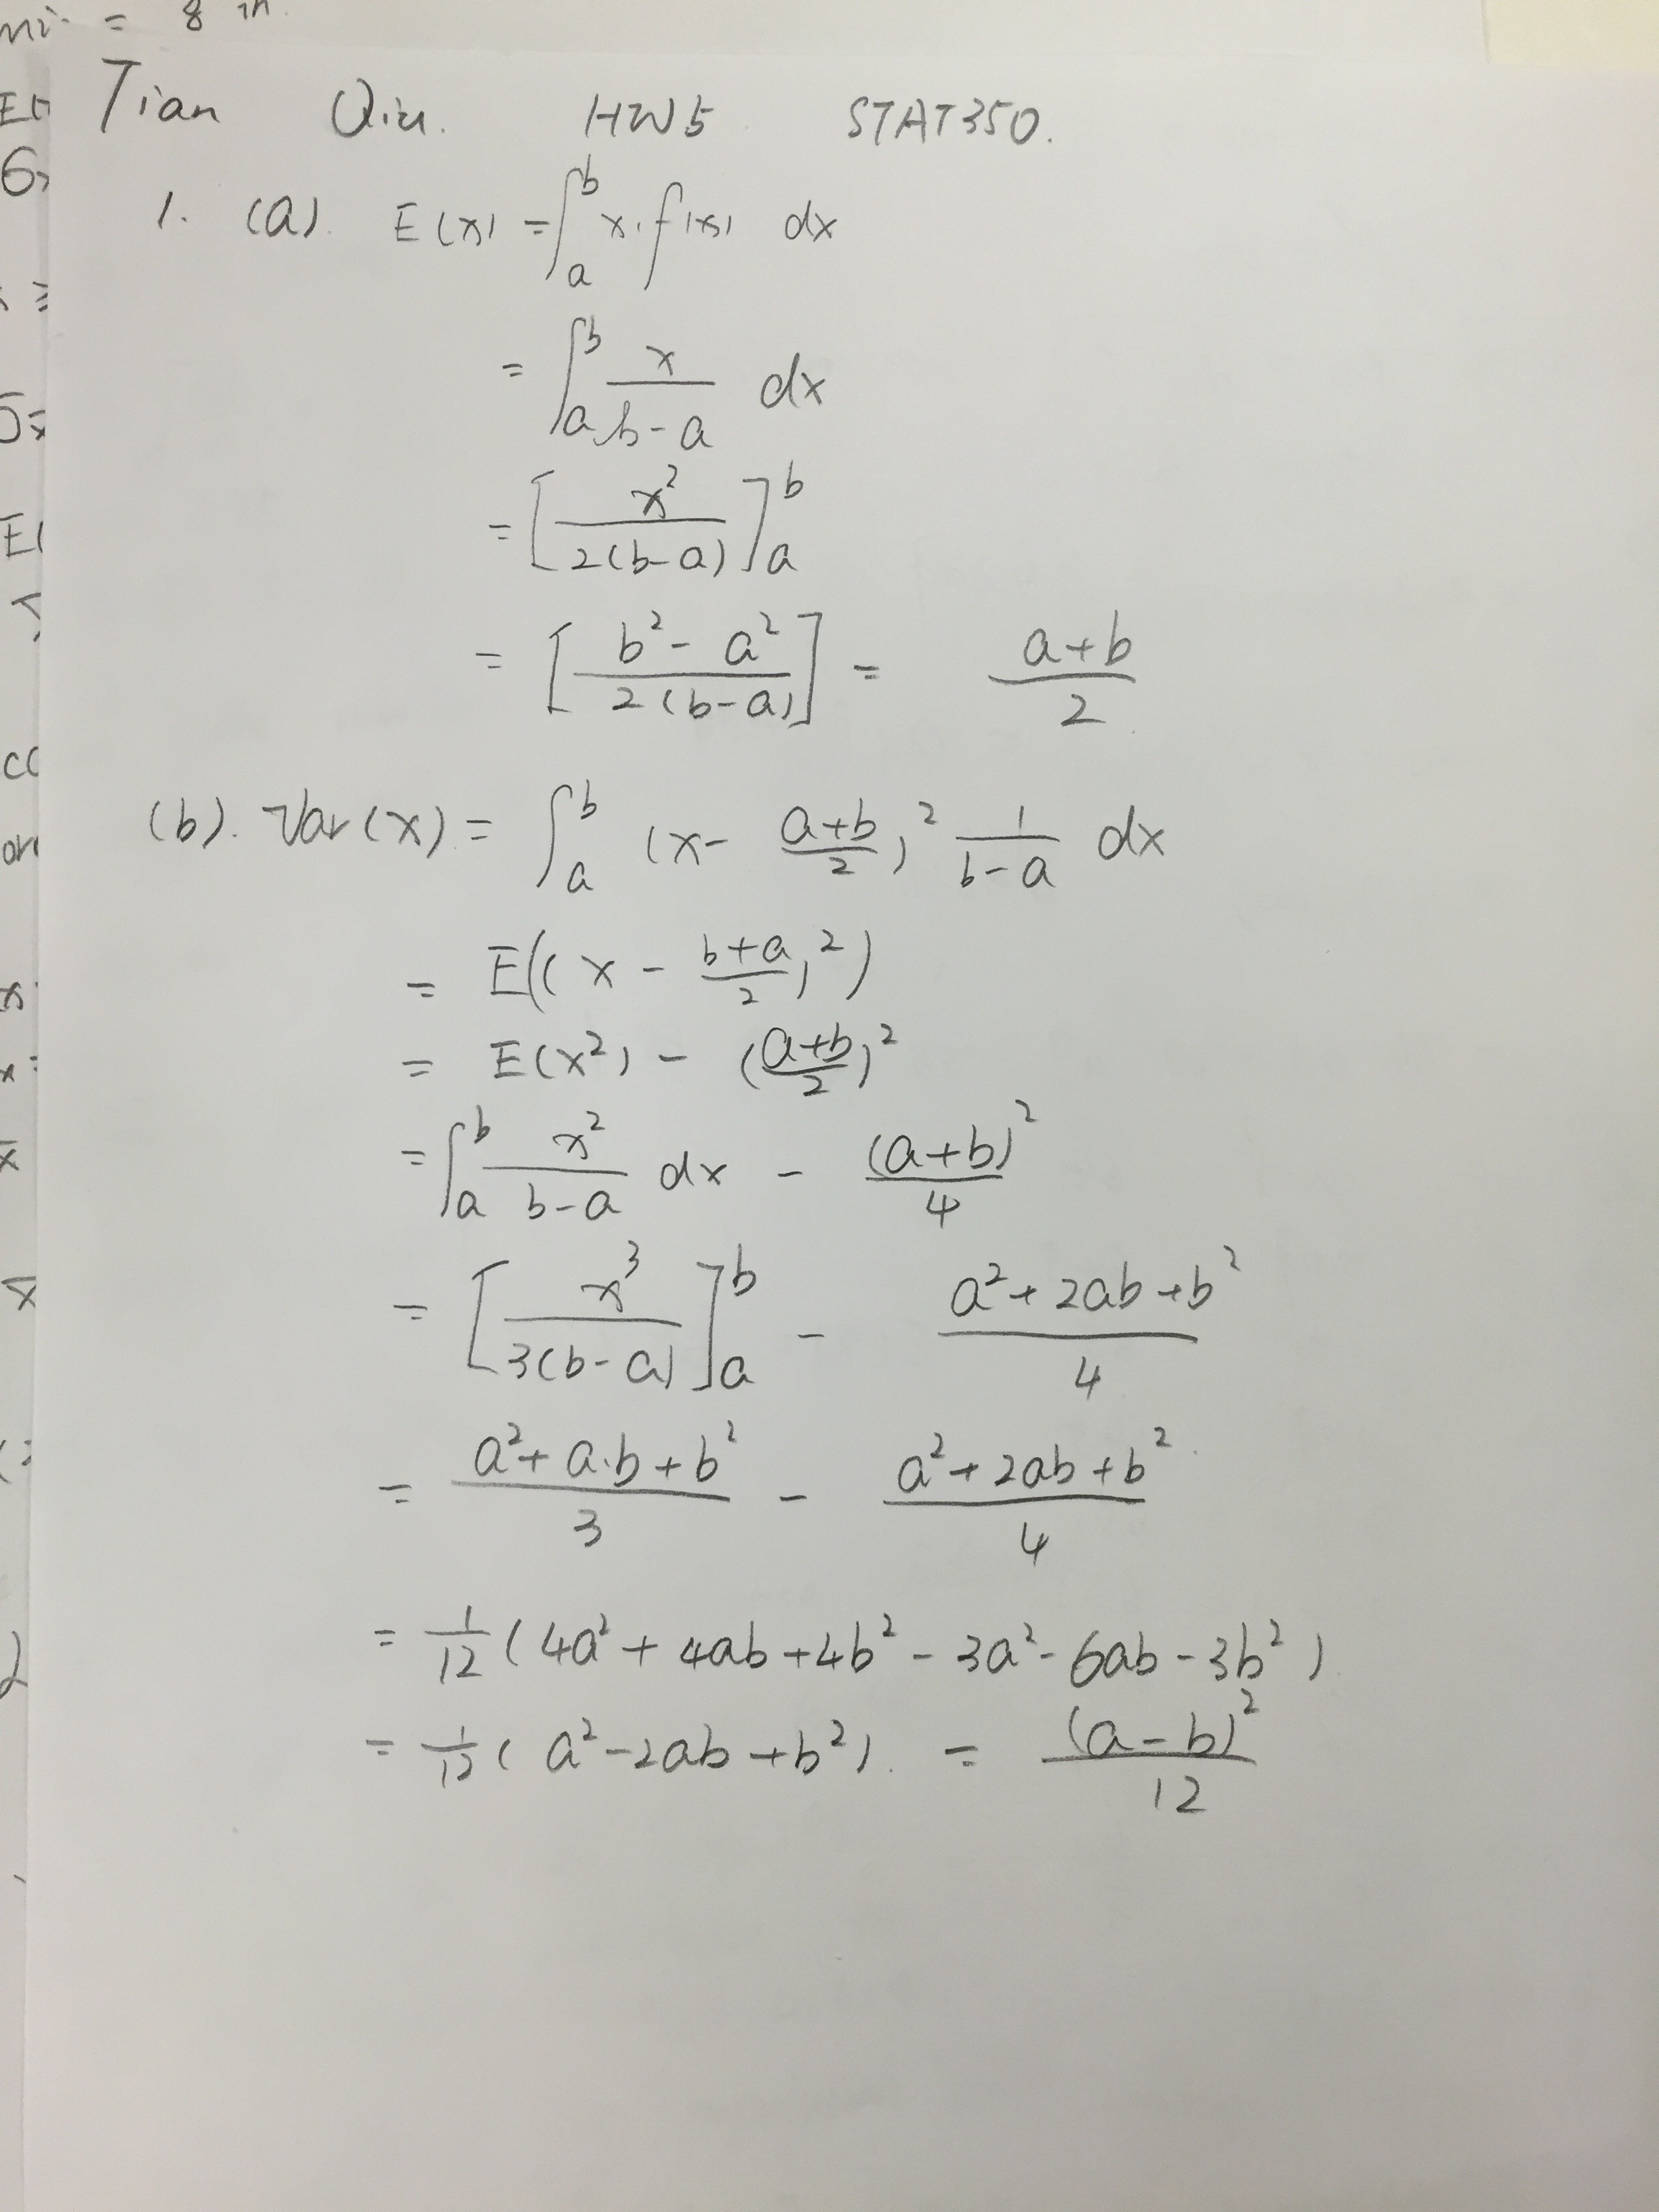 = 8 in
Tian Qiu. HW5 STAT350.
1. (a). E(x) = ∫_a^b x·f(x) dx
= ∫_a^b x/(b-a) dx
= [x²/(2(b-a))]_a^b
= [(b² - a²)/(2(b-a))] = (a+b)/2
(b). Var(x) = ∫_a^b (x - (a+b)/2)² 1/(b-a) dx
= E((x - (b+a)/2)²)
= E(x²) - ((a+b)/2)²
= ∫_a^b x²/(b-a) dx - (a+b)²/4
= [x³/(3(b-a))]_a^b - (a²+2ab+b²)/4
= (a²+a·b+b²)/3 - (a²+2ab+b²)/4
= 1/12 (4a²+4ab+4b²-3a²-6ab-3b²)
= 1/12 (a²-2ab+b²). = (a-b)²/12